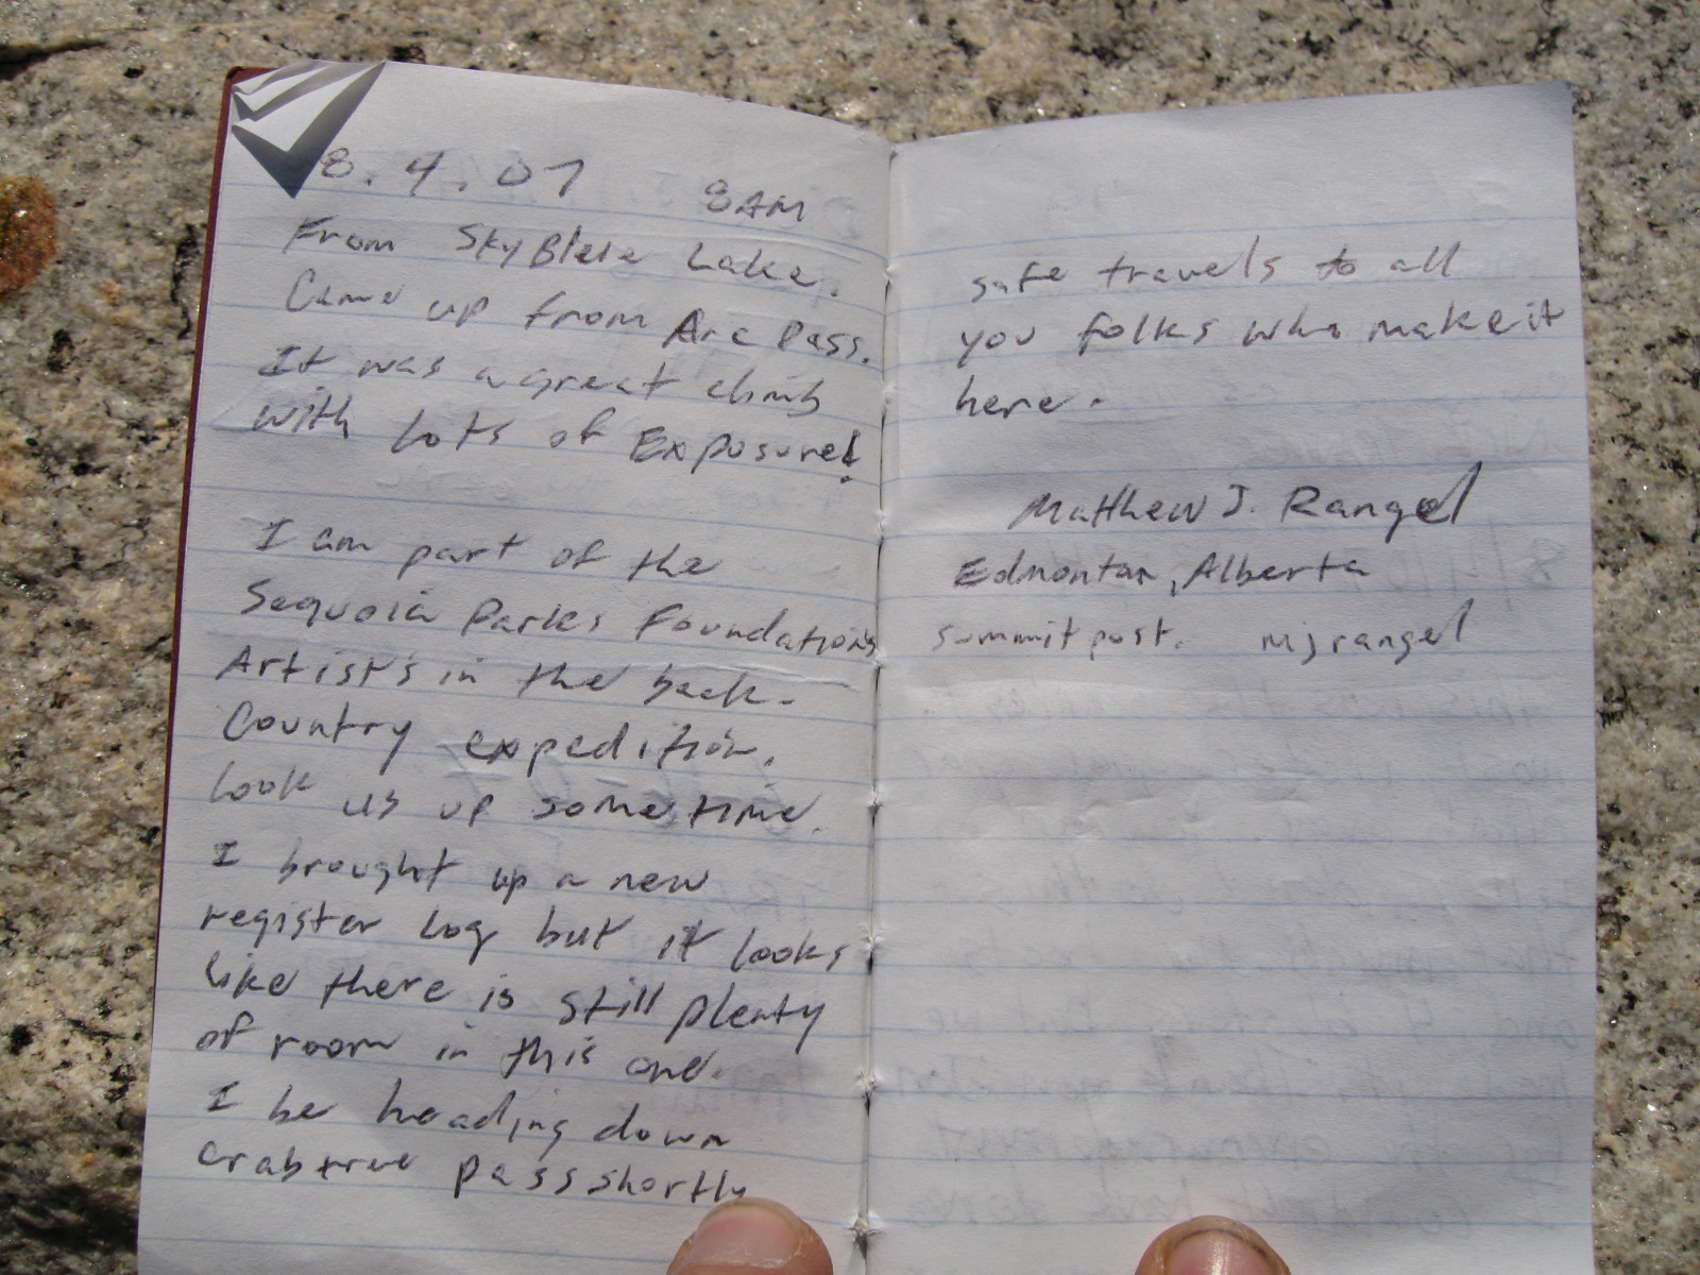 8.4.07 8AM
From Sky Blue Lake.
Came up from Arc Pass.
It was a great climb
with lots of Exposure!
I am part of the
Sequoia Parks Foundations
Artists in the back-
Country expedition.
look us up sometime.
I brought up a new
register log but it looks
like there is still plenty
of room in this one.
I be heading down
crabtree pass shortly
safe travels to all
you folks who make it
here.
Matthew J. Rangel
Edmonton, Alberta
summitpost. mjrangel